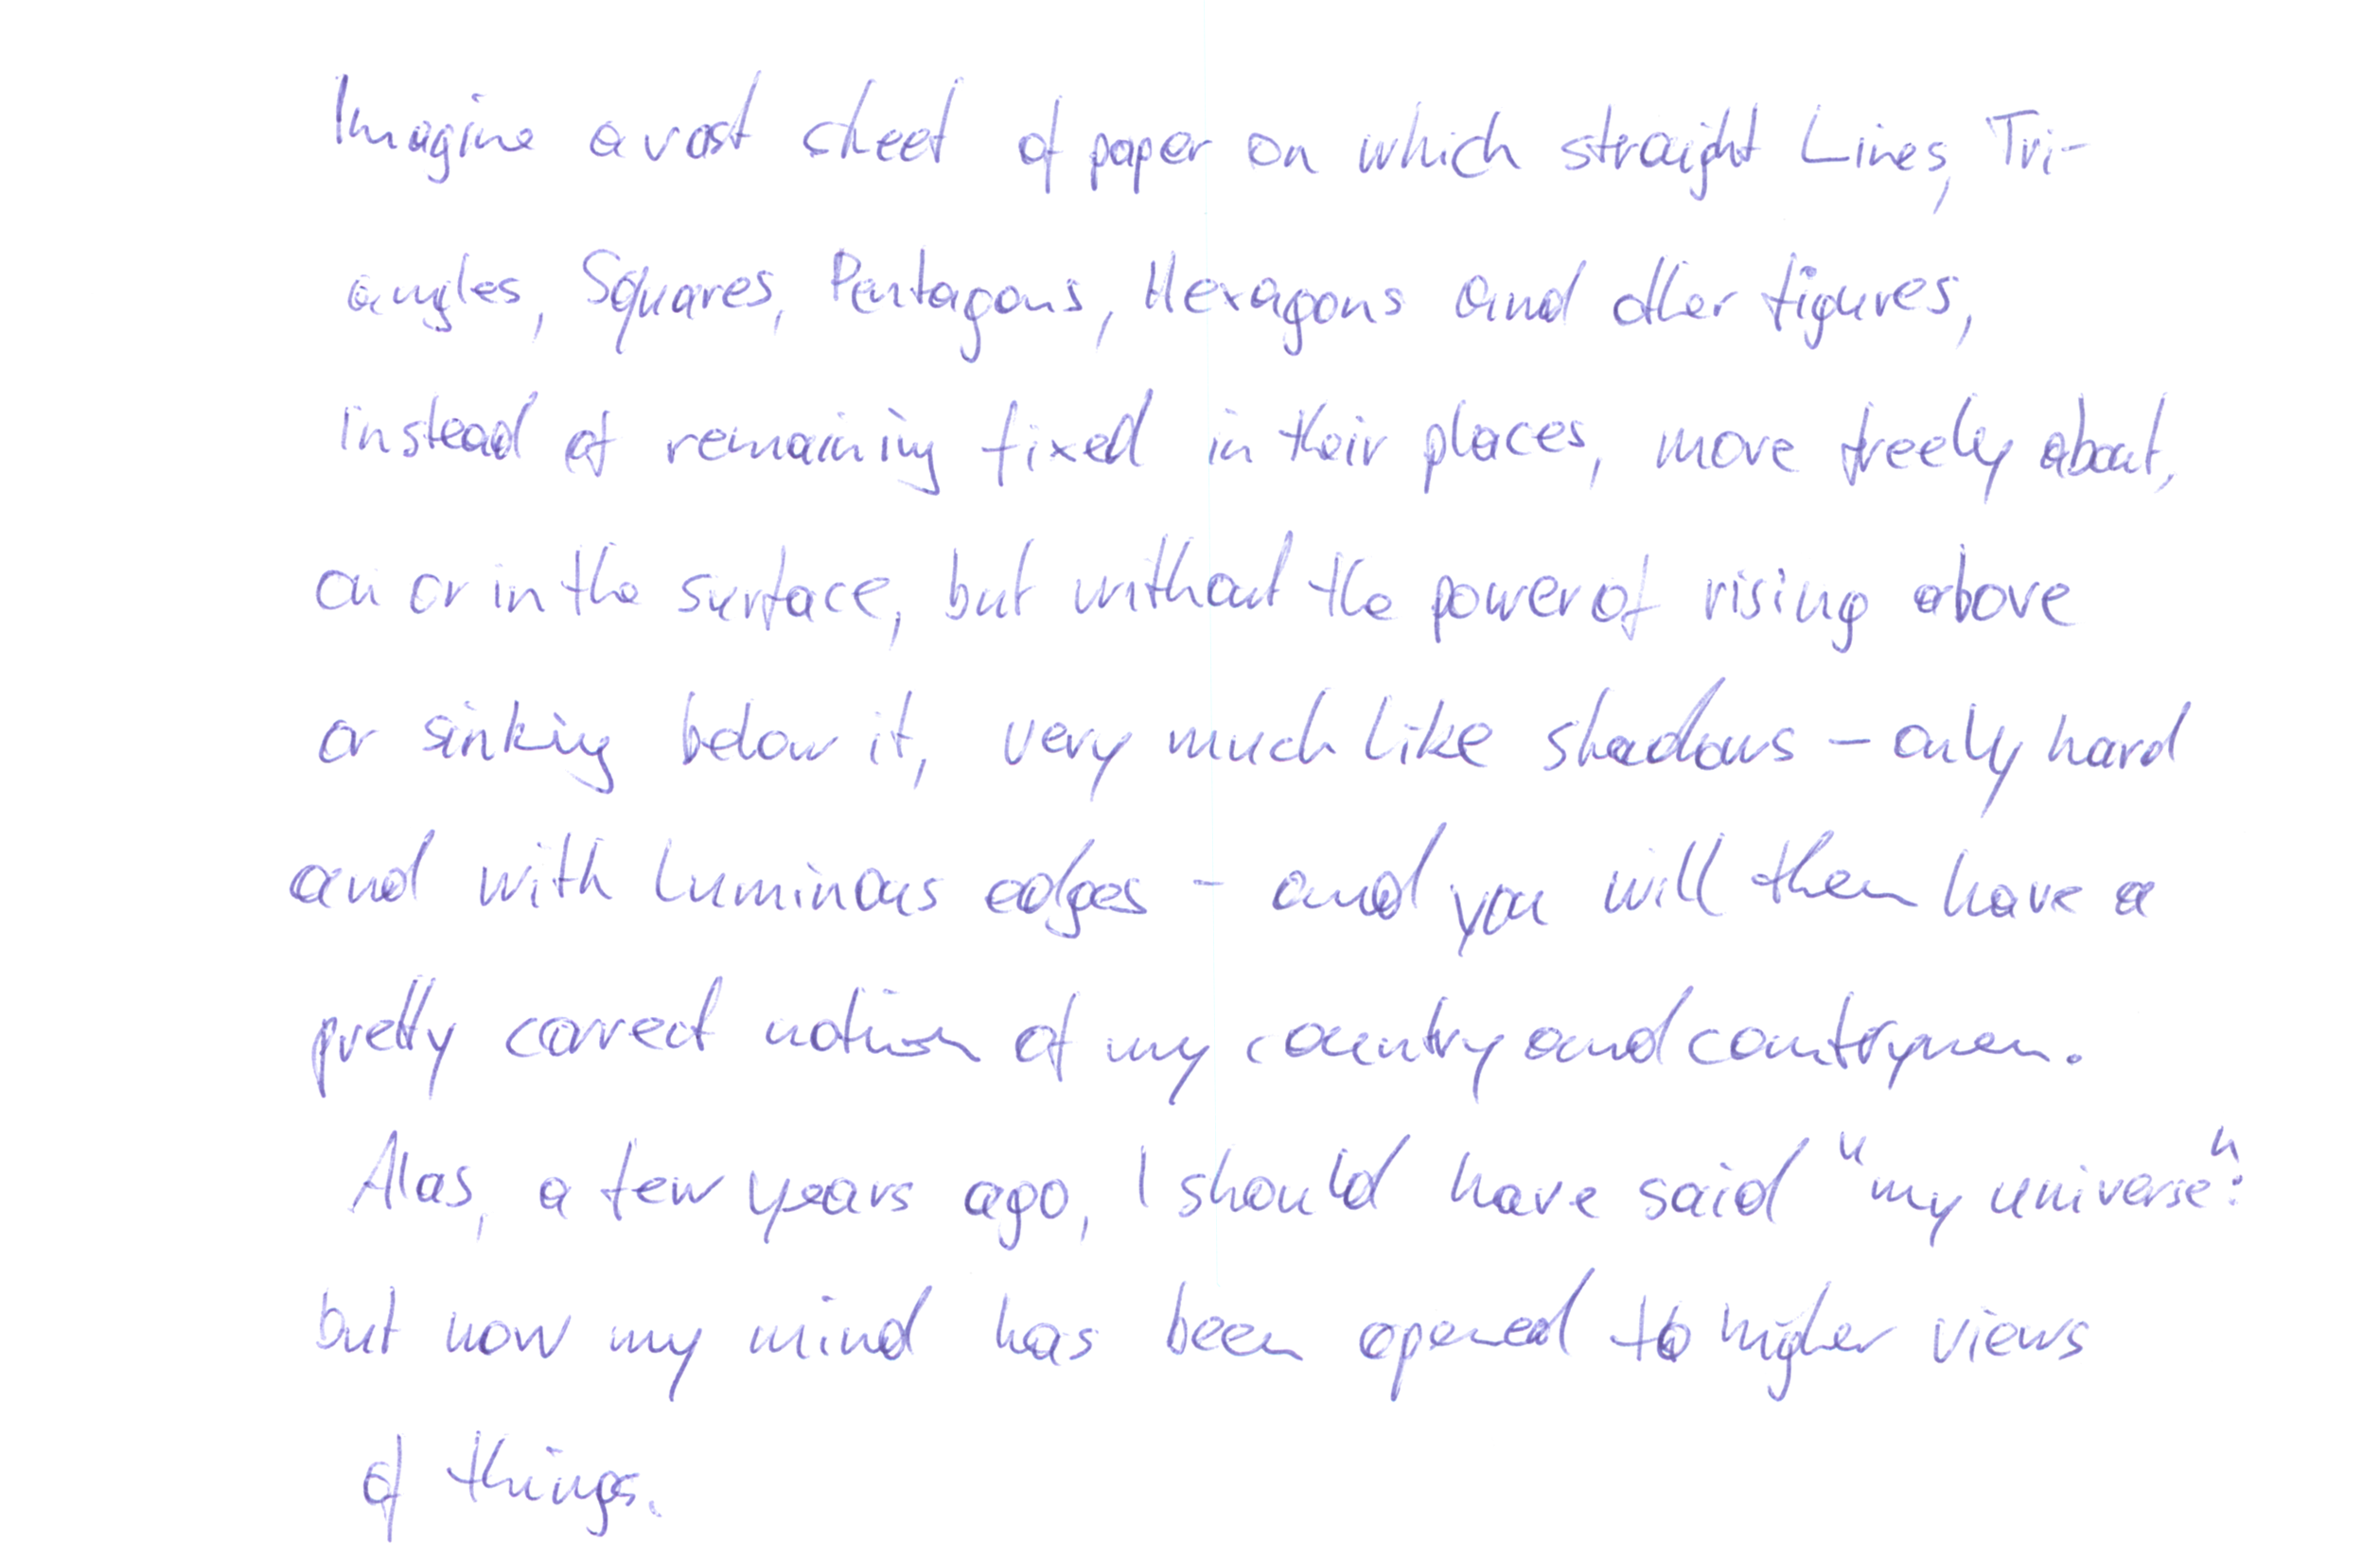 Imagine a vast sheet of paper on which straight Lines, Tri-
angles, Squares, Pentagons, Hexagons and other figures,
instead of remaining fixed in their places, move freely about,
on or in the surface, but without the power of rising above
or sinking below it, very much like shadows – only hard
and with luminous edges – and you will then have a
pretty correct notion of my country and countrymen.
Alas, a few years ago, I should have said "my universe":
but now my mind has been opened to higher views
of things.